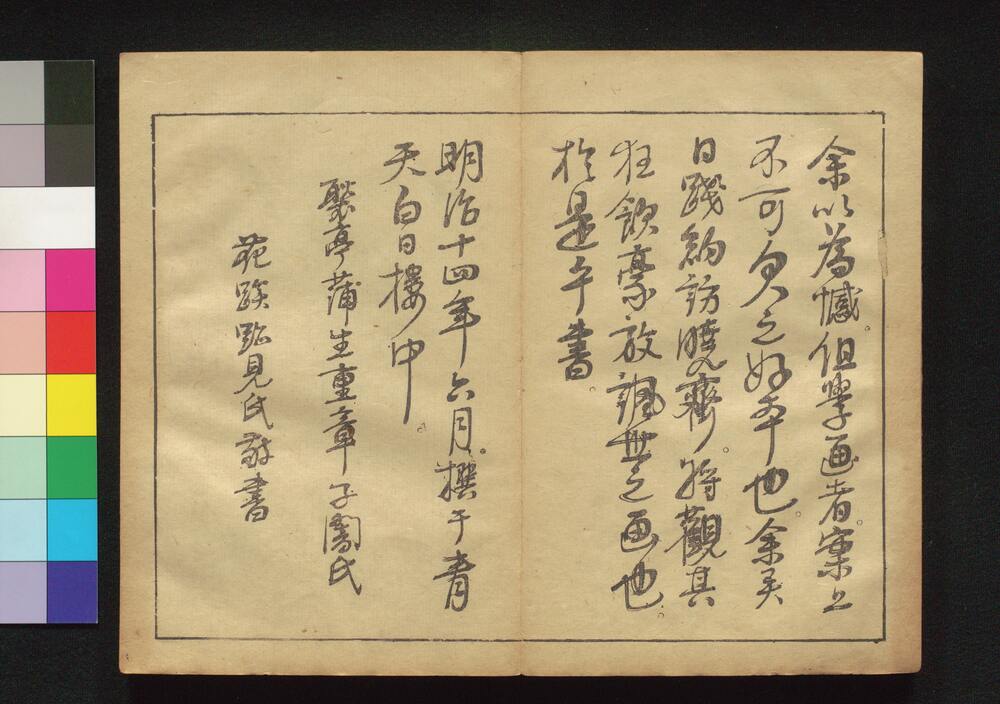 余以為憾。但學画者案上
不可欠之好本也。余異
日踐約訪曉齋。將觀其
狂飲豪放諷世之画也。
於是乎書。
明治十四年六月。撰于青
天白日樓中。
聚亭蒲生重章子闇氏
見氏敬書